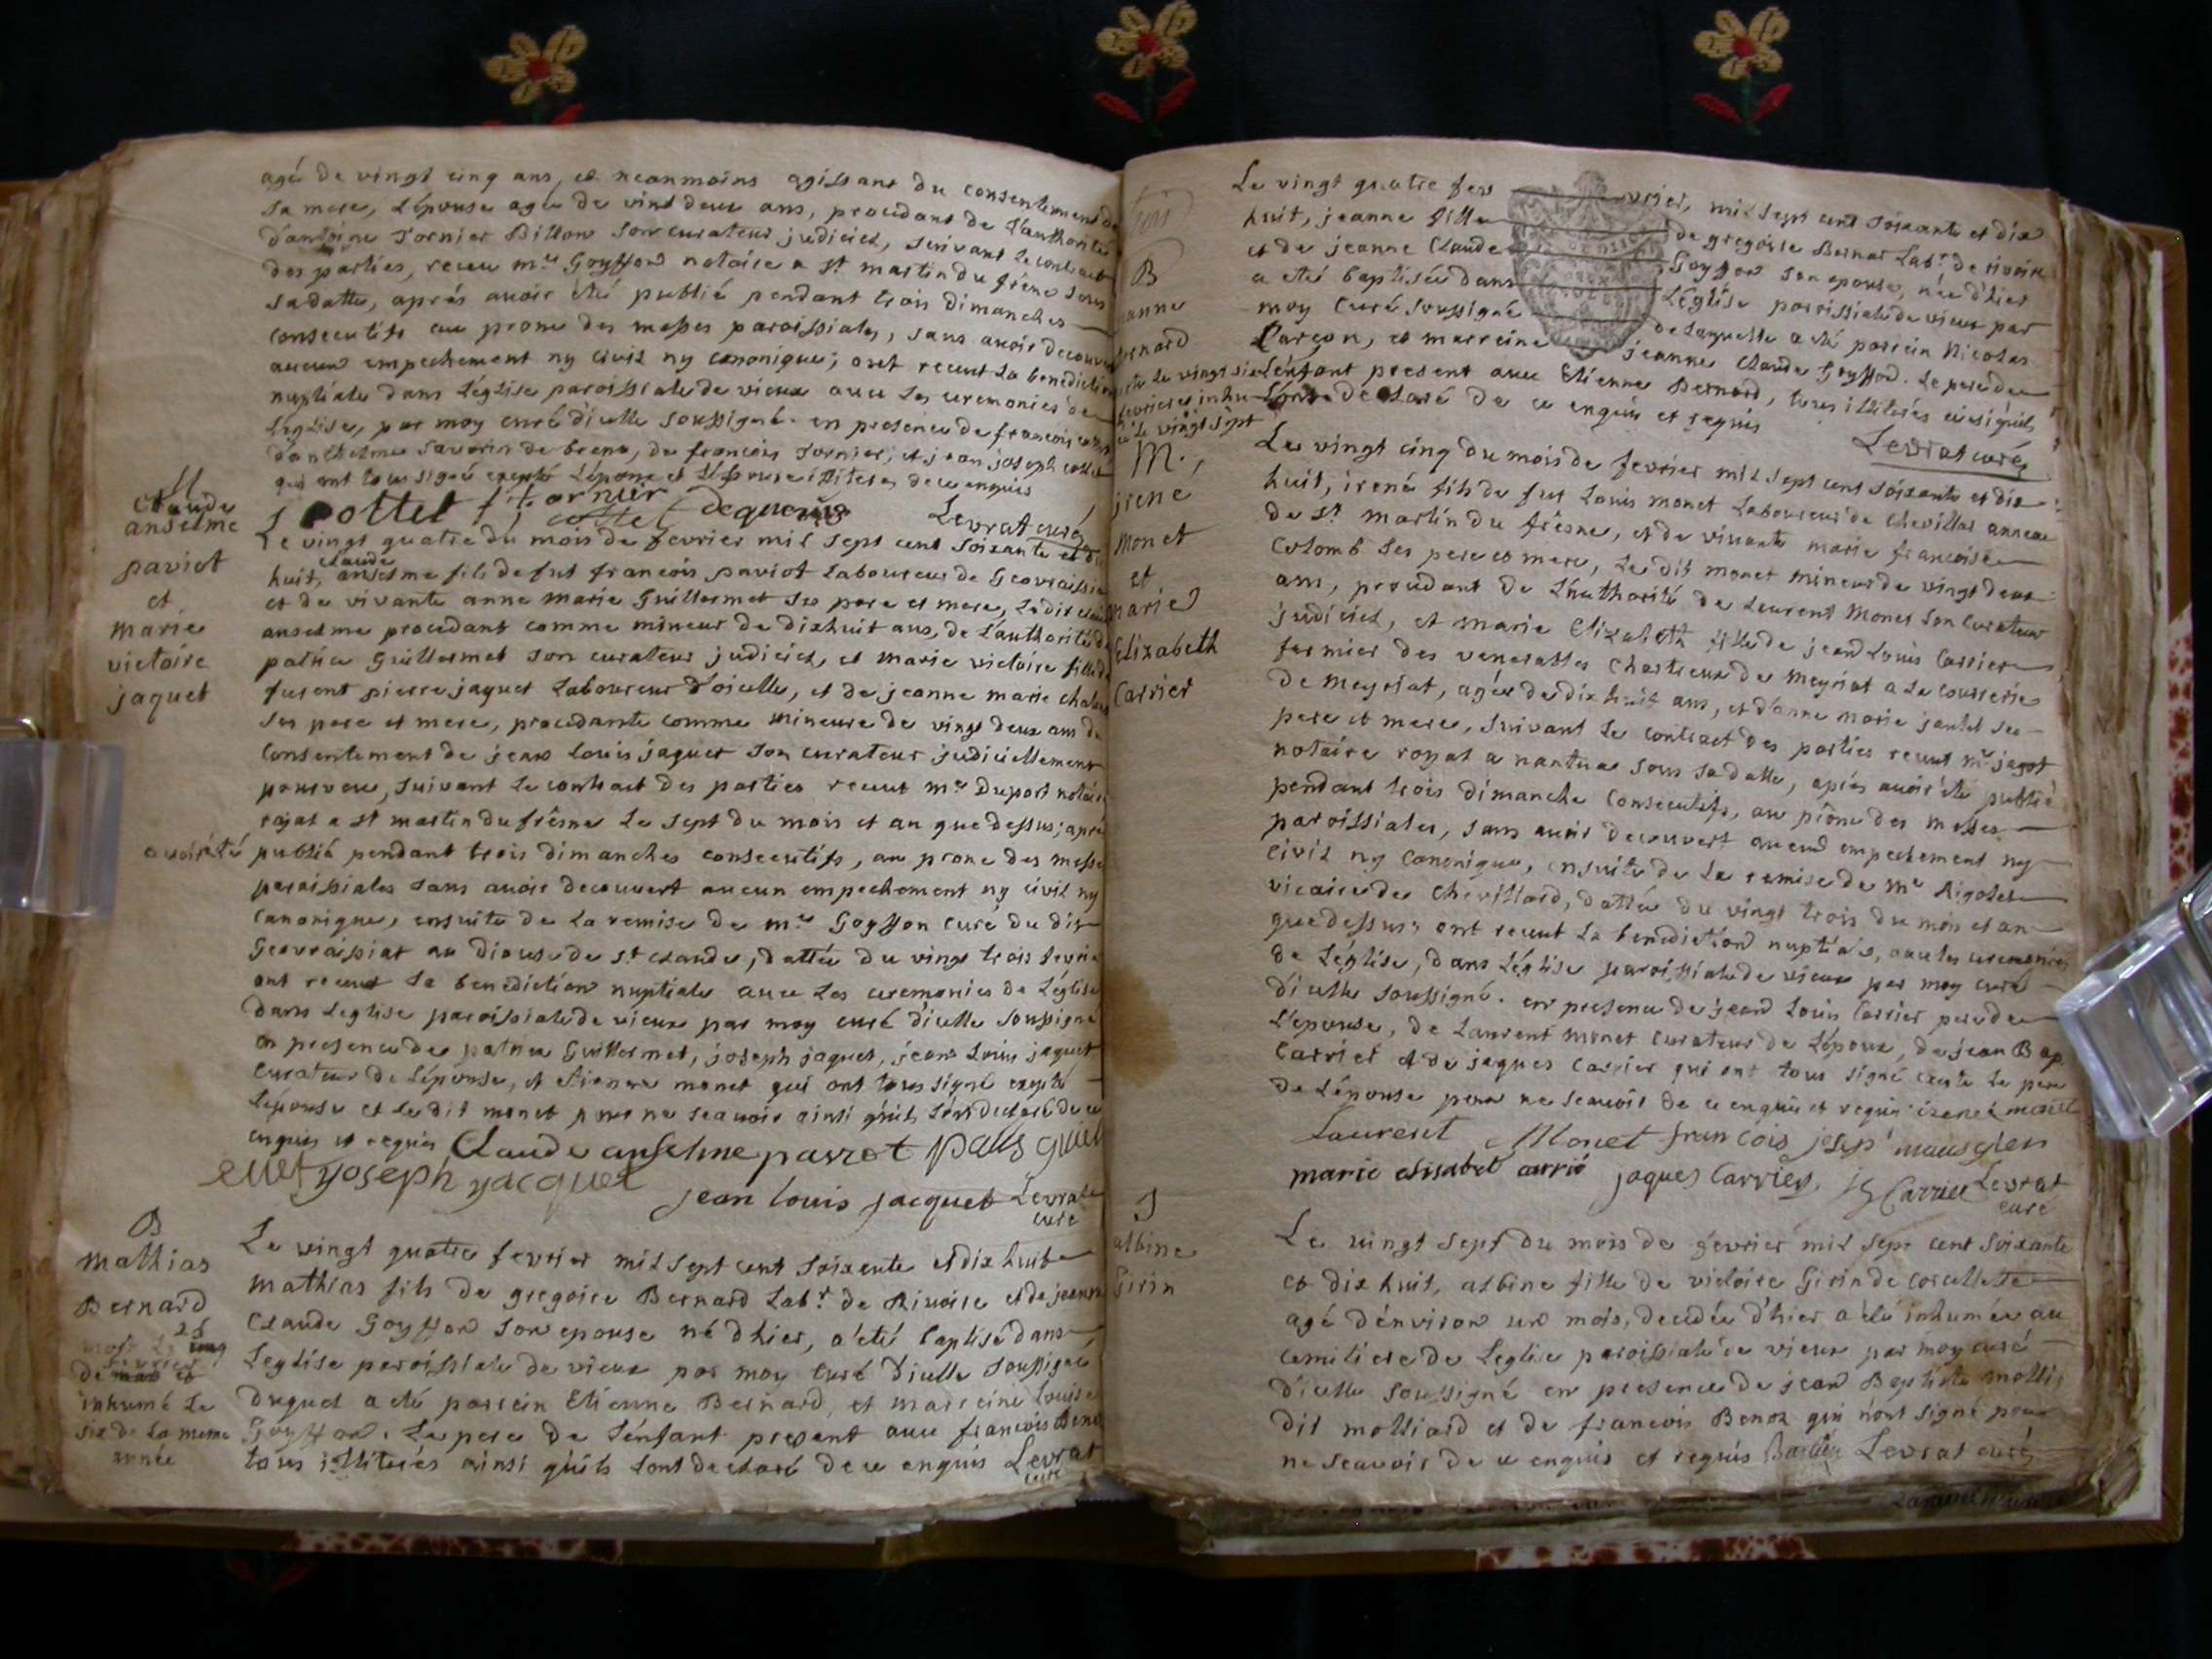 agé de vingt cinq ans, et neanmoins agissant du consentement de
sa mere, L'épouse agée de vint deux ans, procedant de L'authorité
d'antoine Tornier Billon son curateur judiciel, suivant le contract
des parties, receu me Goyffon notaire a st martin du frêne sous
sa datte, aprés avoir été publié pendant trois dimanches
consecutifs au prone des messes paroissiales, sans avoir decouvert
aucun empechement ny civil ny canonique; ont receut La benediction
nuptiale dans L'eglise paroissiale de vieux avec Les ceremonies de
L'eglise, par moy curé d'icelle soussigné. en presence de francois
d'anthelme Savarin de breno, de francois Tornier, et jean joseph
qui ont tous signé excepté L'épouse illiteres de ce enquis
cottet f: tornier cottet Levrat curé
M
Claude
anselme
paviot
et
marie
victoire
jaquet
Le vingt quatre du mois de fevrier mil sept cent soixante et dix
huit, claude anselme fils de fut francois paviot Laboureur de Geovraissia
et de vivante anne marie Guillermet ses pere et mere, Le dit claude
anselme procedant comme mineur de dixhuit ans, de L'authorité de
patrice Guillermet son curateur judiciel, et marie victoire fille de
furent pierre jaquet Laboureur d'oicelle, et de jeanne marie
ses pere et mere, procedante comme mineure de vingt deux ans du
Consentement de jean Louis jaquet son curateur judiciellement
pourveu, suivant Le contract des parties receut me Duport notaire
royal a st martin du frêsne Le sept du mois et an que dessus; aprés
avoir été publié pendant trois dimanches consecutifs, au prone des messes
paroissiales sans avoir decouvert aucun empechement ny civil ny
Canonique, ensuite de La remise de me Goyffon curé du dit
Geovraissiat au diocese de st claude, dattée du vingt trois fevrier
ont receut La benediction nuptiale avec Les ceremonies de L'église
dans L'eglise paroissiale de vieux par moy curé d'icelle soussigné
en presence de patrice Guillermet, joseph jaquet, jean Louis jaquet
Curateur de L'épouse, et etienne monet qui ont tous signé excepté
L'épouse et Le dit monet pour ne sçavoir ainsi qu'ils L'ont declaré de ce
enquis et requis Claude anselme
joseph jacquet
jean louis jacquet Levrat
curé
B
Mathias
Bernard
inhumé Le
six de La meme
année
Le vingt quatre fevrier mil sept cent soixante et dix huit
Mathias fils de gregoire Bernard Labr de Rivoire et de jeanne
Claude Goyffon son epouse né d'hier, a été baptisé dans
L'eglise paroissiale de vieux par moy curé d'icelle soussigné
duquel a été parrein Etienne Bernard, et marreine Louise
Goyffon. Le pere de L'enfant present avec francois Benoz
tous illiterés ainsi qu'ils L'ont declaré de ce enquis Levrat
curé
B
Le vingt quatre fevrier, mil sept cent soixante et dix
huit, jeanne fille de gregoire Bernar Labr de rivoire
et de jeanne Claude Goyffon son epouse, née d'hier
a eté baptisée dans L'église paroissiale de vieux par
moy Curé soussigné de Laquelle a eté parrein Nicolas
Carçon, et marreine jeanne Claude Goyffon. Le pere de
L'enfant present avec Etienne Bernard, tous illiterés
L'ont declaré de ce enquis et requis Levrat curé
M.
irene
Monet
et
Marie
Elizabeth
Carrier
Le vingt cinq du mois de fevrier mil sept cent soixante et dix
huit, irené fils de fut Louis monet Laboureur de chevillar anneau
de st martin du frêsne, et de vivante marie francoise
Colomb ses pere et mere, Le dit monet mineur de vingt deux
ans, procedant de L'authorité de Laurent Monet son Curateur
judiciel, et marie Elizabeth fille de jean Louis Carrier
fermier des venerables Chartreux de Meyriat a La courerie
de Meyriat, agée de dix huit ans, et d'anne marie ses
pere et mere, suivant Le contract des parties receut me jagot
notaire royal a nantua sous sa datte, aprés avoir été publié
pendant trois dimanche Consecutifs, au prône des Messes
paroissiales, sans avoir decouvert aucun empechement ny
Civil ny Canonique, ensuite de La remise de me Rigolet
vicaire de Chevillard, dattée du vingt trois du mois et an
que dessus; ont receut La benediction nuptiale, avec les ceremonies
de L'église, dans L'église paroissiale de vieux par moy curé
d'icelle soussigné. en presence de jean Louis Carrier pere de
L'epouse, de Laurent monet curateur de L'époux, de jean Bap
Carrier et de jaques Carrier qui ont tous signé excepté Le pere
de L'épouse pour ne sçavoir de ce enquis et requis irené monet
Laurent Monet francois
marie elisabet carrié jaques Carrier. Carrier Levrat
curé
S
albine
Girin
Le vingt sept du mois de fevrier mil sept cent soixante
et dix huit, albine fille de victoire Girin de corcellette
agé d'environ un mois, decedée d'hier a été inhumée au
cemitiere de L'eglise paroissiale de vieux par moy curé
d'icelle soussigné en presence de jean Baptiste mollie
dit molliard et de francois Benoz qui n'ont signé pour
ne sçavoir de ce enquis et requis Levrat curé